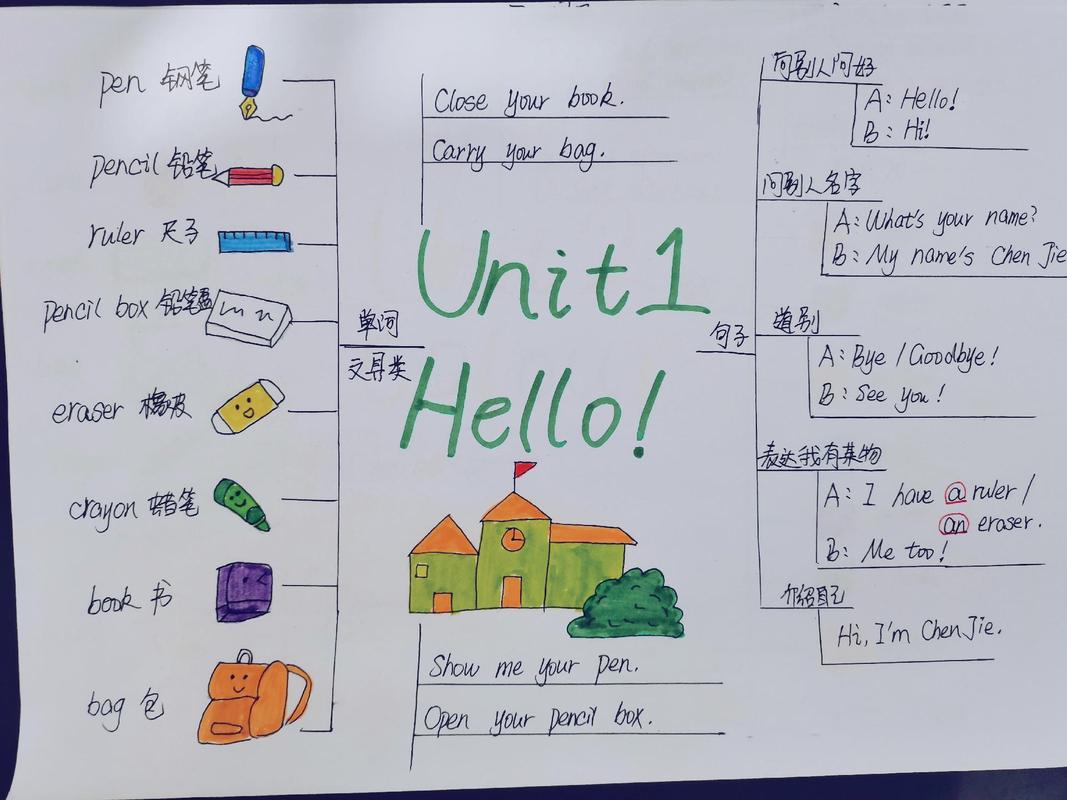 pen 钢笔
pencil 铅笔
ruler 尺子
pencil box 铅笔盒
eraser 橡皮
crayon 蜡笔
book 书
bag 包
单词
文具类
Close your book.
Carry your bag.
Unit1
Hello!
Show me your pen.
Open your pencil box.
句子
向别人问好
A: Hello!
B: Hi!
问别人名字
A: What's your name?
B: My name's Chen Jie
道别
A: Bye / Goodbye!
B: See you!
表达我有某物
A: I have a ruler /
an eraser.
B: Me too!
介绍自己
Hi, I'm Chen Jie.